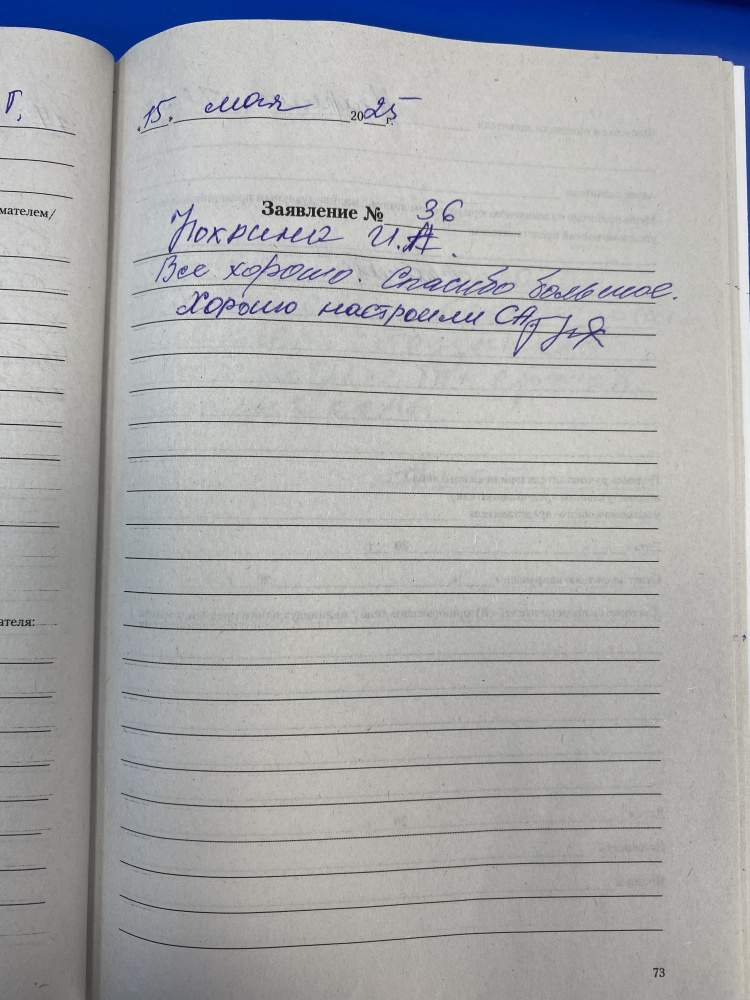 Г.
«15» мая 2025 г.
мателем/
Заявление № 36
И.А.
Все хорошо. Спасибо большое.
Хорошо настроили СА
ателя:
73